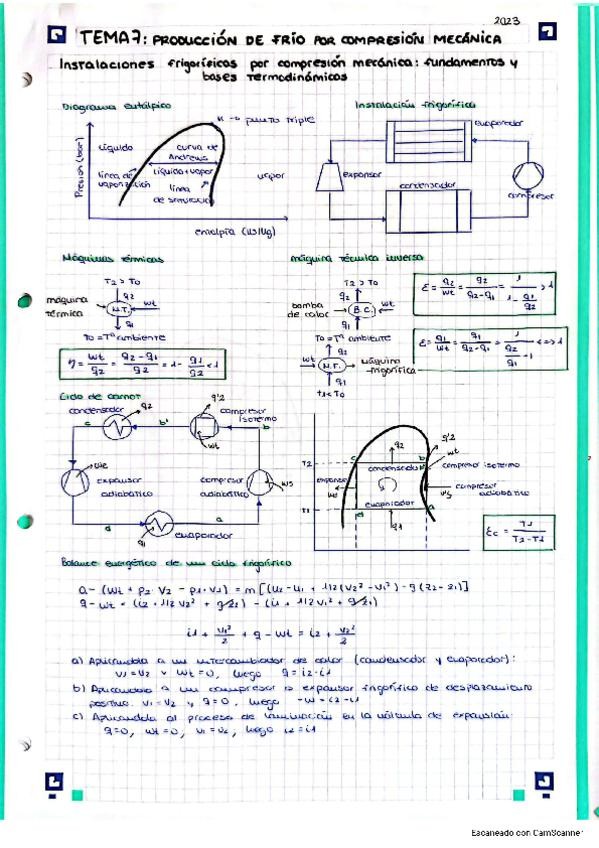 2023
TEMA 7: PRODUCCIÓN DE FRÍO POR COMPRESIÓN MECÁNICA
Instalaciones frigoríficas por compresión mecánica: fundamentos y
bases termodinámicas
Diagrama entálpico
K → punto triple
Presión (bar)
líquido
curva de
Andrews
líquido + vapor
línea de
vaporización
línea
de saturación
vapor
entalpía (kJ/kg)
Instalación frigorífica
evaporador
expansor
condensador
compresor
Máquinas térmicas
T2 > T0
máquina
térmica
q2
M.T.
wt
q1
T0 = Tª ambiente
η = wt/q2 = q2-q1/q2 = 1 - q1/q2 < 1
máquina térmica inversa
T2 > T0
bomba
de calor
q2
B.C.
wt
q1
T0 = Tª ambiente
q2
wt
M.T.
máquina
frigorífica
q1
T1 < T0
ε = q2/wt = q2/q2-q1 = 1/1-q1/q2 > 1
ε = q1/wt = q1/q2-q1 = 1/q2/q1-1 <=> 1
Ciclo de carnot
condensador
q2
q'2
compresor
isotermo
c
b'
b
wt
we
expansor
adiabático
compresor
adiabático
ws
d
a
evaporador
q1
T2
T1
q2
q'2
c
condensador
b
wt
compresor isotermo
expansor
we
compresor
adiabático
ws
evaporador
d
a
q1
εc = T1/T2-T1
Balance energético de un ciclo frigorífico
Q - (Wt + P2·V2 - P1·V1) = m[(u2 - u1 + 1/2(V2² - V1²) - g(z2 - z1)]
q - wt = (i2 + 1/2 V2² + gz2) - (i1 + 1/2 V1² + gz1)
i1 + V1²/2 + q - wt = i2 + V2²/2
a) Aplicándola a un intercambiador de calor (condensador y evaporador):
V1=V2 y Wt=0, luego q = i2-i1
b) Aplicándola a un compresor o expansor frigorífico de desplazamiento
positivo. V1=V2 y q=0, luego -W=i2-i1
c) Aplicándola al proceso de laminación en la válvula de expansión:
q=0, wt=0, V1=V2, luego i2=i1
Escaneado con CamScanner